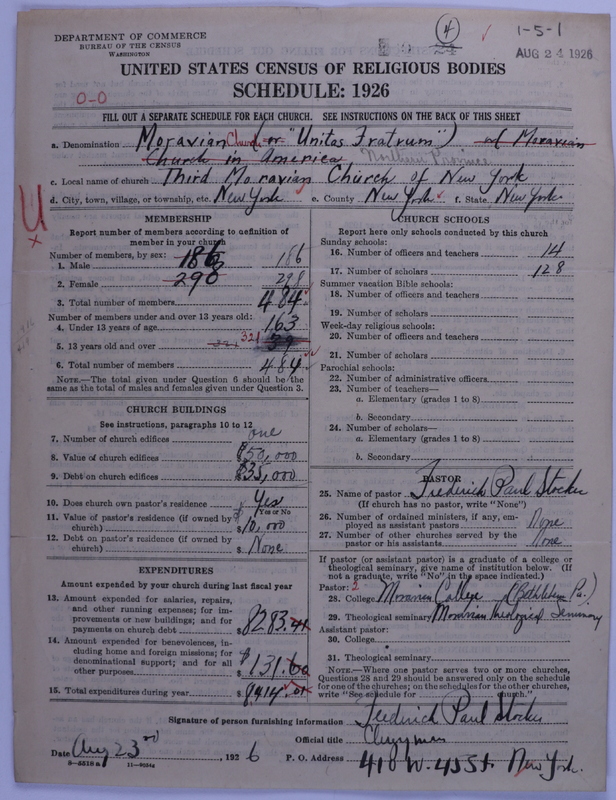 4
1-5-1
AUG 24 1926
DEPARTMENT OF COMMERCE
BUREAU OF THE CENSUS
WASHINGTON
UNITED STATES CENSUS OF RELIGIOUS BODIES
SCHEDULE: 1926
0-0
FILL OUT A SEPARATE SCHEDULE FOR EACH CHURCH. SEE INSTRUCTIONS ON THE BACK OF THIS SHEET
a. Denomination Moravian Church (or "Unitas Fratrum") of Moravian
Church in America Northern Province
c. Local name of church Third Moravian Church of New York
d. City, town, village, or township, etc. New York e. County New York f. State New York
U
x
MEMBERSHIP
Report number of members according to definition of
member in your church
Number of members, by sex:
1. Male 186 186
2. Female 298 298
3. Total number of members 484
Number of members under and over 13 years old:
4. Under 13 years of age 163
5. 13 years old and over 321
6. Total number of members 484
NOTE.—The total given under Question 6 should be the
same as the total of males and females given under Question 3.
CHURCH BUILDINGS
See instructions, paragraphs 10 to 12
7. Number of church edifices one
8. Value of church edifices $50,000
9. Debt on church edifices $35,000
10. Does church own pastor's residence Yes
Yes or No
11. Value of pastor's residence (if owned by
church) $10,000
12. Debt on pastor's residence (if owned by
church) $ None
EXPENDITURES
Amount expended by your church during last fiscal year
13. Amount expended for salaries, repairs,
and other running expenses; for im-
provements or new buildings; and for
payments on church debt $8283.41
14. Amount expended for benevolences, in-
cluding home and foreign missions; for
denominational support; and for all
other purposes $131.60
15. Total expenditures during year $8414.01
CHURCH SCHOOLS
Report here only schools conducted by this church
Sunday schools:
16. Number of officers and teachers 14
17. Number of scholars 128
Summer vacation Bible schools:
18. Number of officers and teachers
19. Number of scholars
Week-day religious schools:
20. Number of officers and teachers
21. Number of scholars
Parochial schools:
22. Number of administrative officers
23. Number of teachers—
a. Elementary (grades 1 to 8)
b. Secondary
24. Number of scholars—
a. Elementary (grades 1 to 8)
b. Secondary
PASTOR
25. Name of pastor Frederick Paul Stocker
(If church has no pastor, write "None")
26. Number of ordained ministers, if any, em-
ployed as assistant pastors None
27. Number of other churches served by the
pastor or his assistants None
If pastor (or assistant pastor) is a graduate of a college or
theological seminary, give name of institution below. (If
not a graduate, write "No" in the space indicated.)
Pastor: 2
28. College Moravian College (Bethlehem Pa.)
29. Theological seminary Moravian Theological Seminary
Assistant pastor:
30. College
31. Theological seminary
NOTE.—Where one pastor serves two or more churches,
Questions 28 and 29 should be answered only on the schedule
for one of the churches; on the schedules for the other churches,
write "See schedule for church."
Signature of person furnishing information Frederick Paul Stocker
Official title Clergyman
Date Aug 23rd, 1926
P. O. Address 410 W. 45 St. New York.
8-5518a 11-9034a